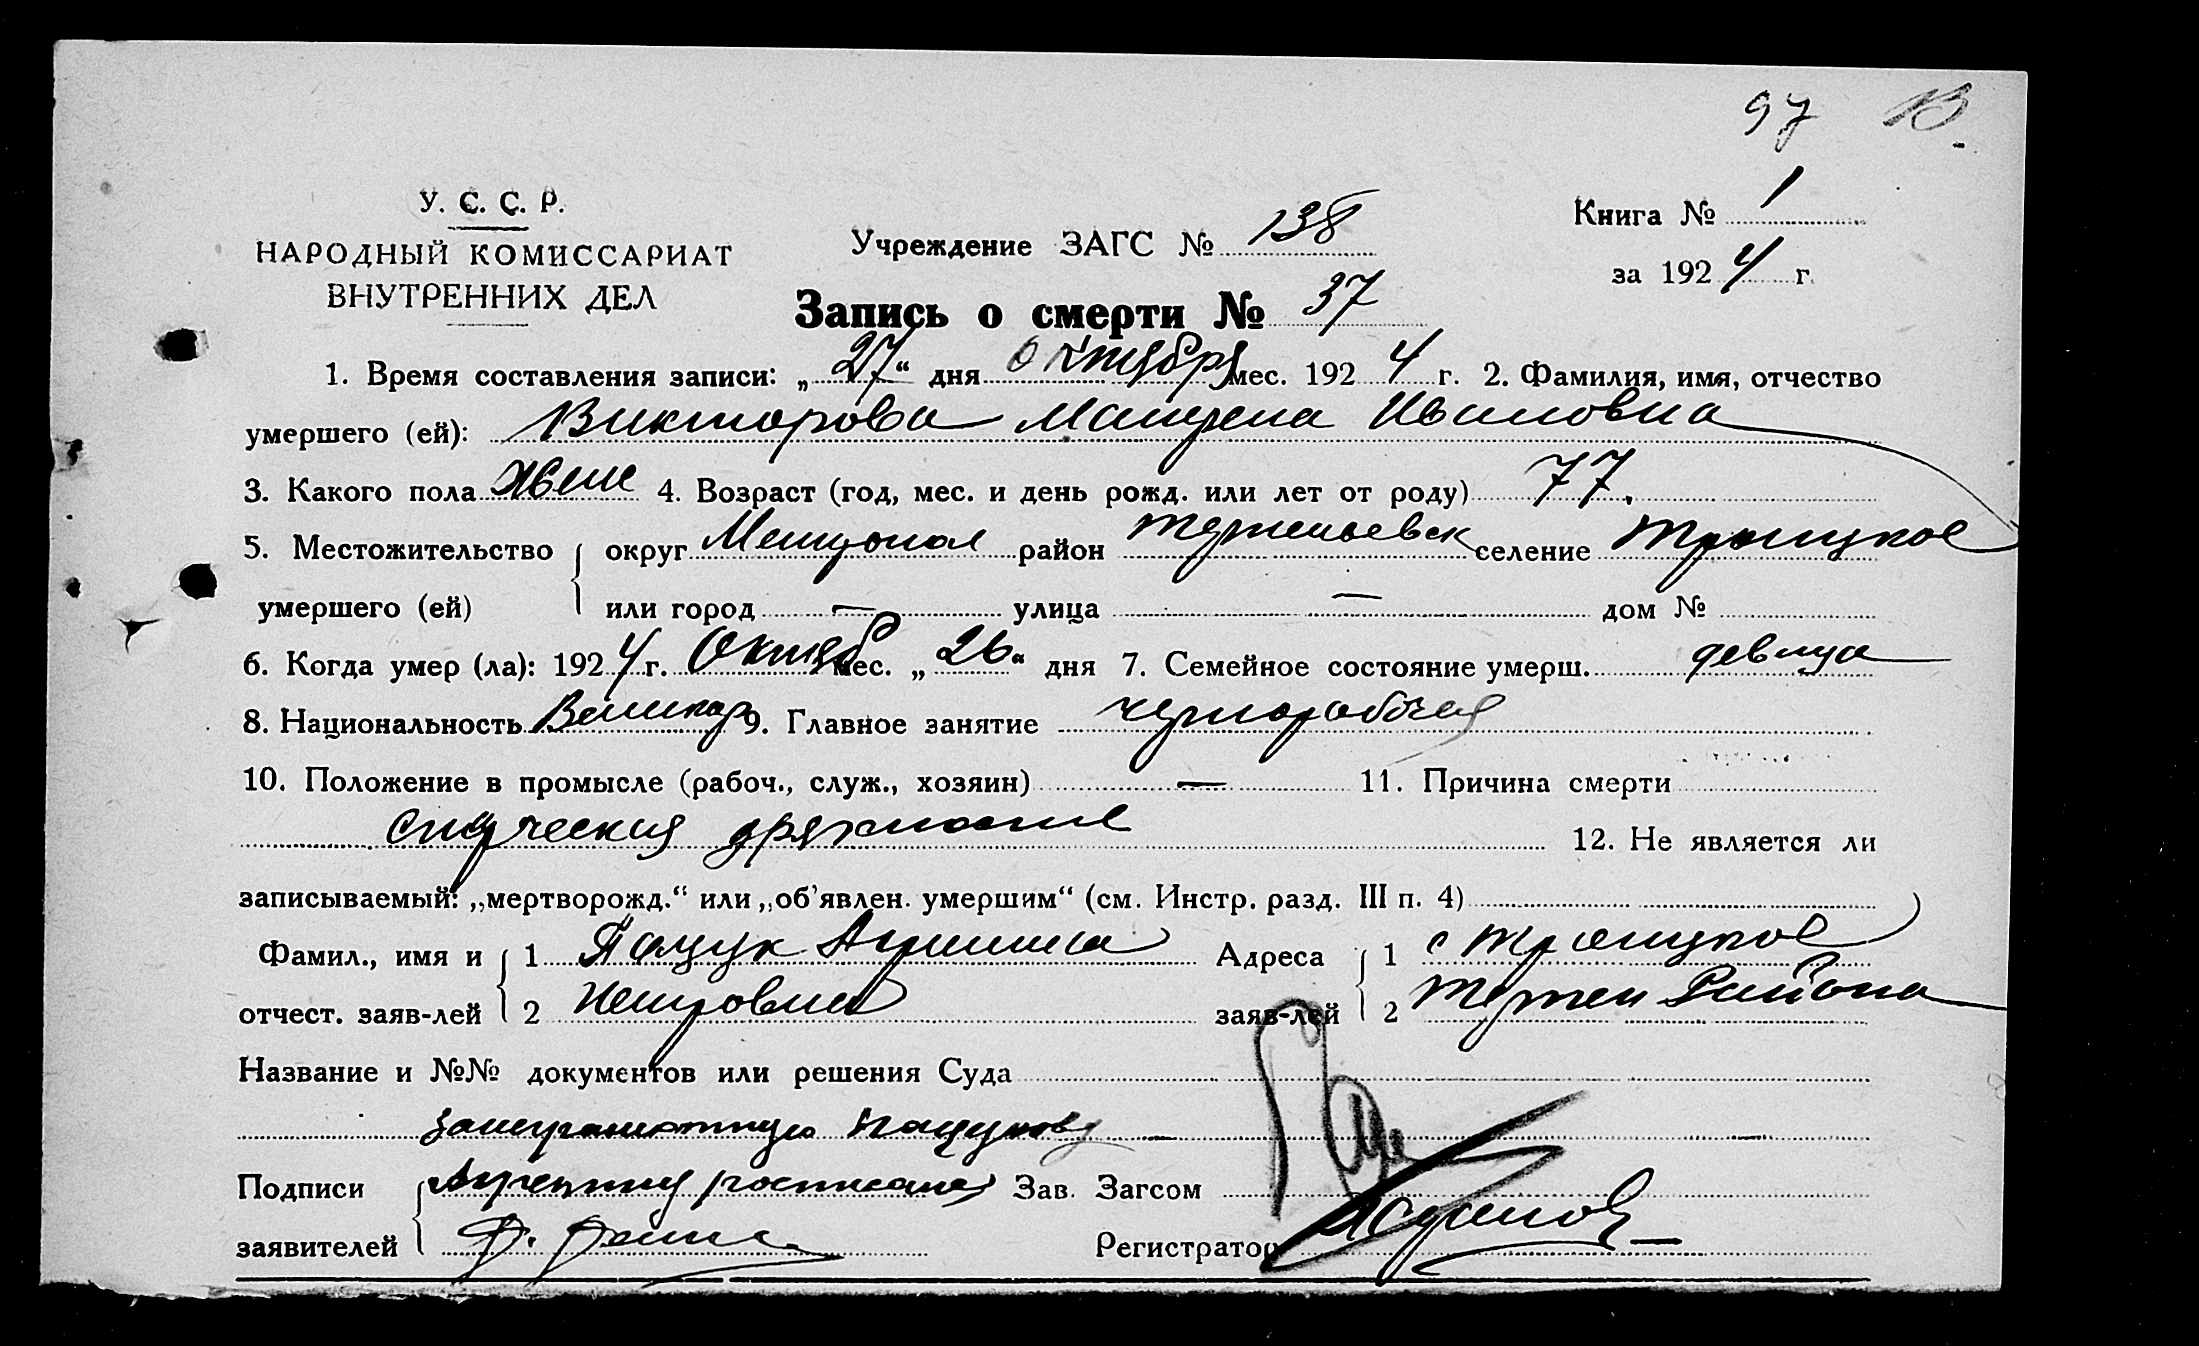 97 13
У. С. С. Р.
НАРОДНЫЙ КОМИССАРИАТ
ВНУТРЕННИХ ДЕЛ
Учреждение ЗАГС № 138
Книга № 1
за 1924 г.
Запись о смерти № 37
1. Время составления записи: „27“ дня Октября мес. 1924 г. 2. Фамилия, имя, отчество
умершего (ей): Викторова Матрена Ивановна
3. Какого пола жен 4. Возраст (год, мес. и день рожд. или лет от роду) 77.
5. Местожительство округ район Терпеньевск селение Троицкое
умершего (ей) или город — улица — дом №
6. Когда умер (ла): 1924 г. Октяб мес. „26“ дня 7. Семейное состояние умерш. девица
8. Национальность Великор 9. Главное занятие чернорабочая
10. Положение в промысле (рабоч., служ., хозяин) — 11. Причина смерти
старческая дряхлость 12. Не является ли
записываемый: „мертворожд.“ или „об’явлен. умершим“ (см. Инстр. разд. III п. 4)
Фамил., имя и 1 Пацук Агрипина Адреса 1 с Троицкое
отчест. заяв-лей 2 Петровна заяв-лей 2 Терпен Района
Название и №№ документов или решения Суда
за неграмотную
Подписи Зав. Загсом
заявителей Регистратор